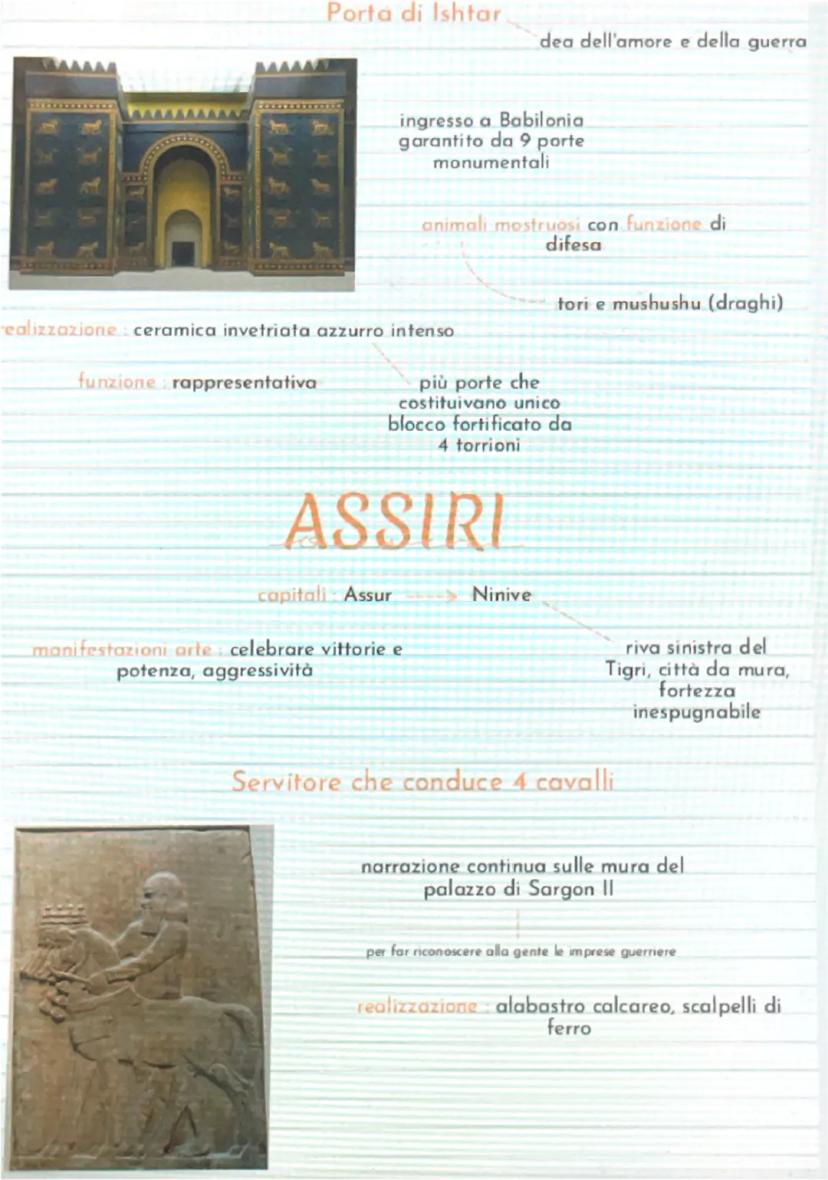 Porta di Ishtar
dea dell'amore e della guerra
ingresso a Babilonia
garantito da 9 porte
monumentali
animali mostruosi con funzione di
difesa
tori e mushushu (draghi)
realizzazione : ceramica invetriata azzurro intenso
funzione : rappresentativa
più porte che
costituivano unico
blocco fortificato da
4 torrioni
ASSIRI
capitali : Assur ----> Ninive
manifestazioni arte : celebrare vittorie e
potenza, aggressività
riva sinistra del
Tigri, città da mura,
fortezza
inespugnabile
Servitore che conduce 4 cavalli
narrazione continua sulle mura del
palazzo di Sargon II
per far riconoscere alla gente le imprese guerriere
realizzazione : alabastro calcareo, scalpelli di
ferro